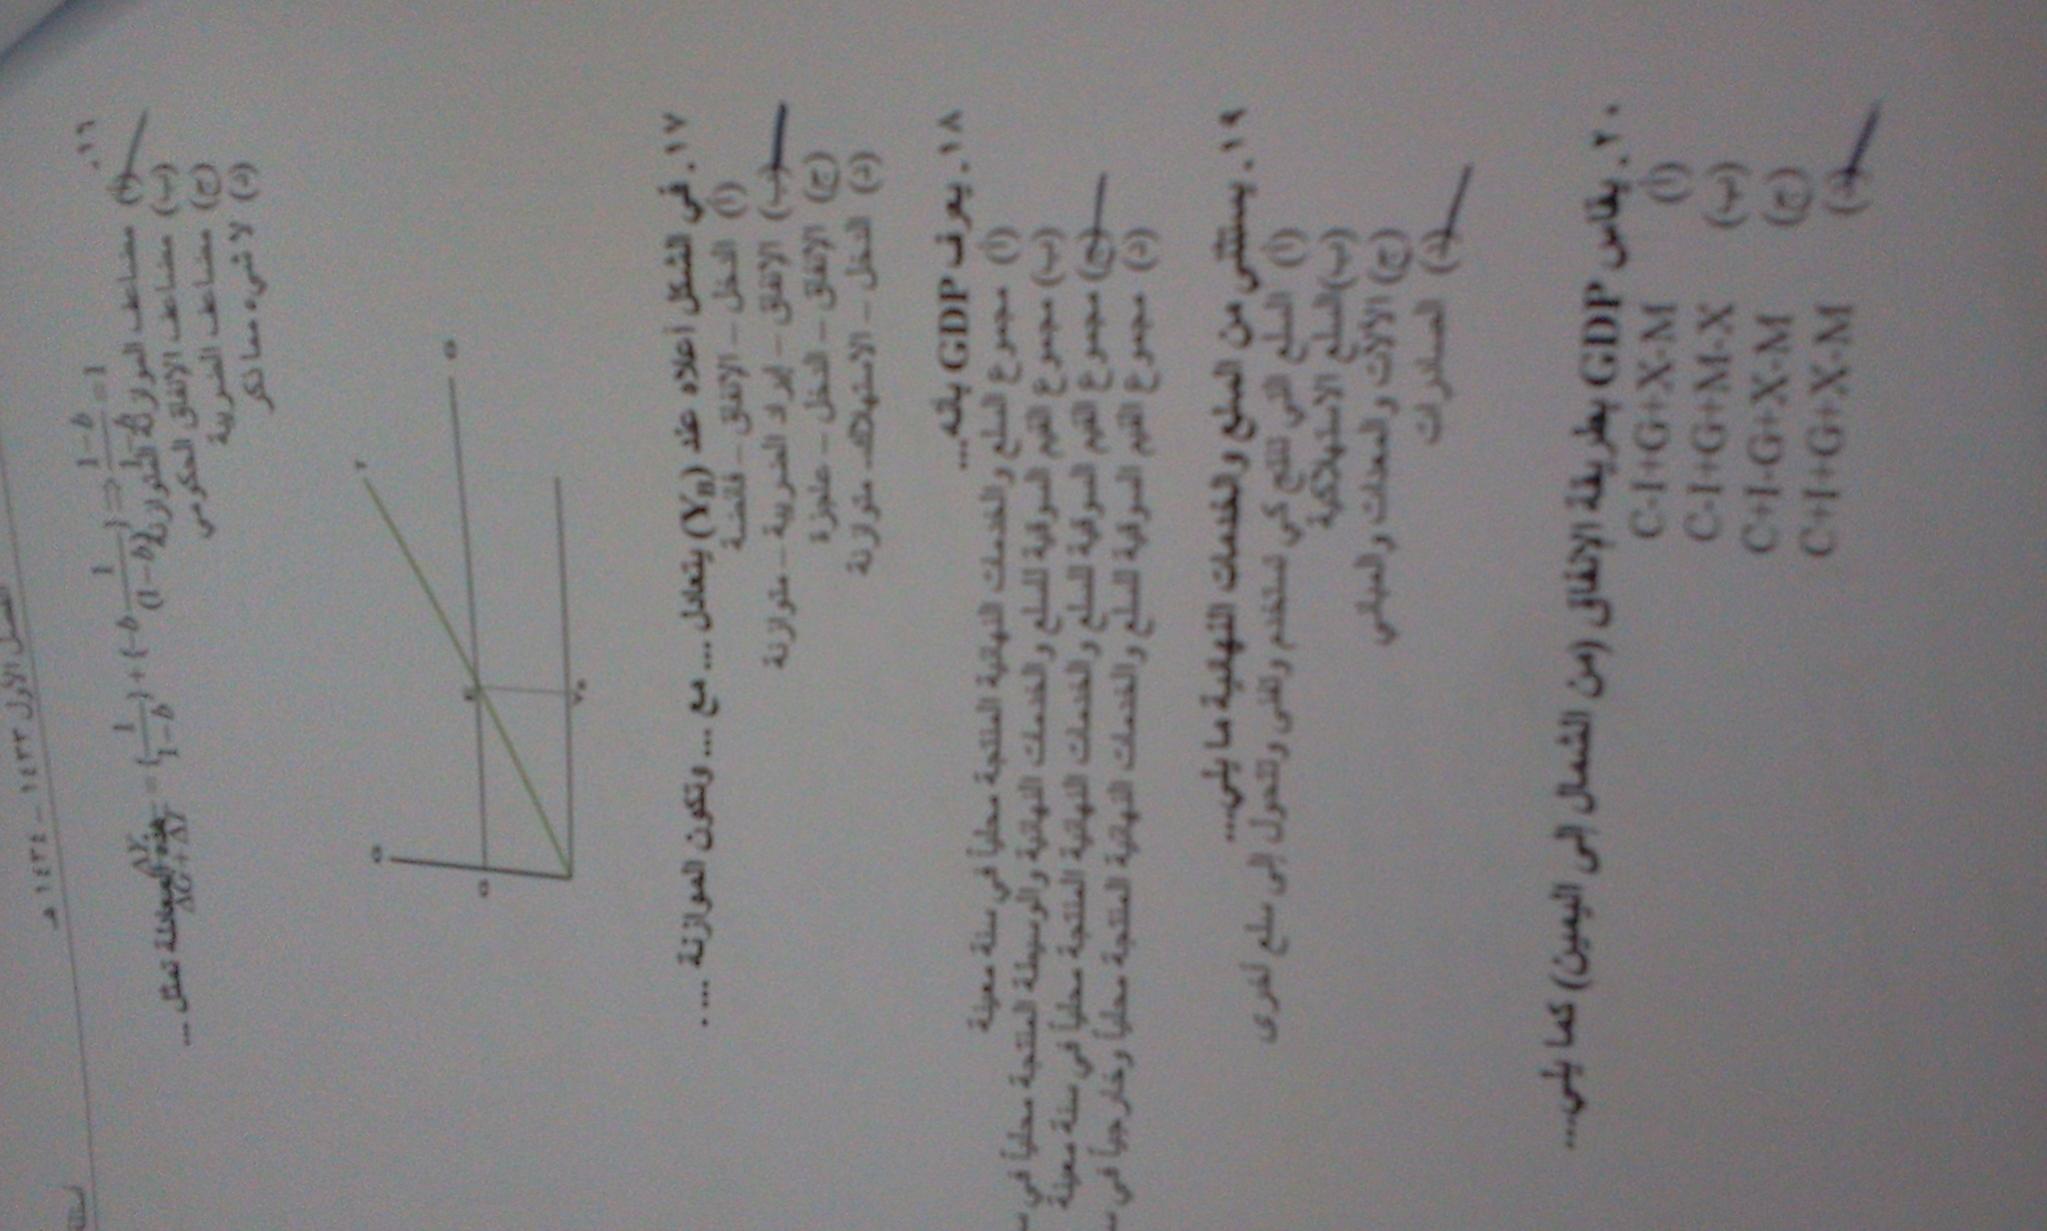 الفصل الأول ١٤٣٣ – ١٤٣٤ هـ
١٦.
هذه المعادلة تمثل ...
(أ) مضاعف الموازنة المتوازنة
(ب) مضاعف الإنفاق الحكومي
(ج) مضاعف الضريبة
(د) لا شيء مما ذكر
G
G
G
T
E
١٧. في الشكل أعلاه عند (Y_B) يتعادل .... مع .... وتكون الموازنة ....
(أ) الدخل – الإنفاق – فائضة
(ب) الإنفاق – إيراد الضريبة – متوازنة
(ج) الإنفاق – الدخل – عاجزة
(د) الدخل – الاستهلاك – متوازنة
١٨. يعرف GDP بأنه...
(أ) مجموع السلع والخدمات النهائية المنتجة محلياً في سنة معينة
(ب) مجموع القيم السوقية للسلع والخدمات النهائية والوسيطة المنتجة محلياً في
(ج) مجموع القيم السوقية للسلع والخدمات النهائية المنتجة محلياً في سنة معينة
(د) مجموع القيم السوقية للسلع والخدمات النهائية المنتجة محلياً وخارجياً في
١٩. يستثنى من السلع والخدمات النهائية ما يلي...
(أ) السلع التي تنتج كي تستخدم وتفنى وتتحول إلى سلع أخرى
(ب) السلع الاستهلاكية
(ج) الآلات والمعدات والمباني
(د) الصادرات
٢٠. يقاس GDP بطريقة الإنفاق (من الشمال إلى اليمين) كما يلي...
(أ) C-I+G+X-M
(ب) C-I+G+M-X
(ج) C+I-G+X-M
(د) C+I+G+X-M